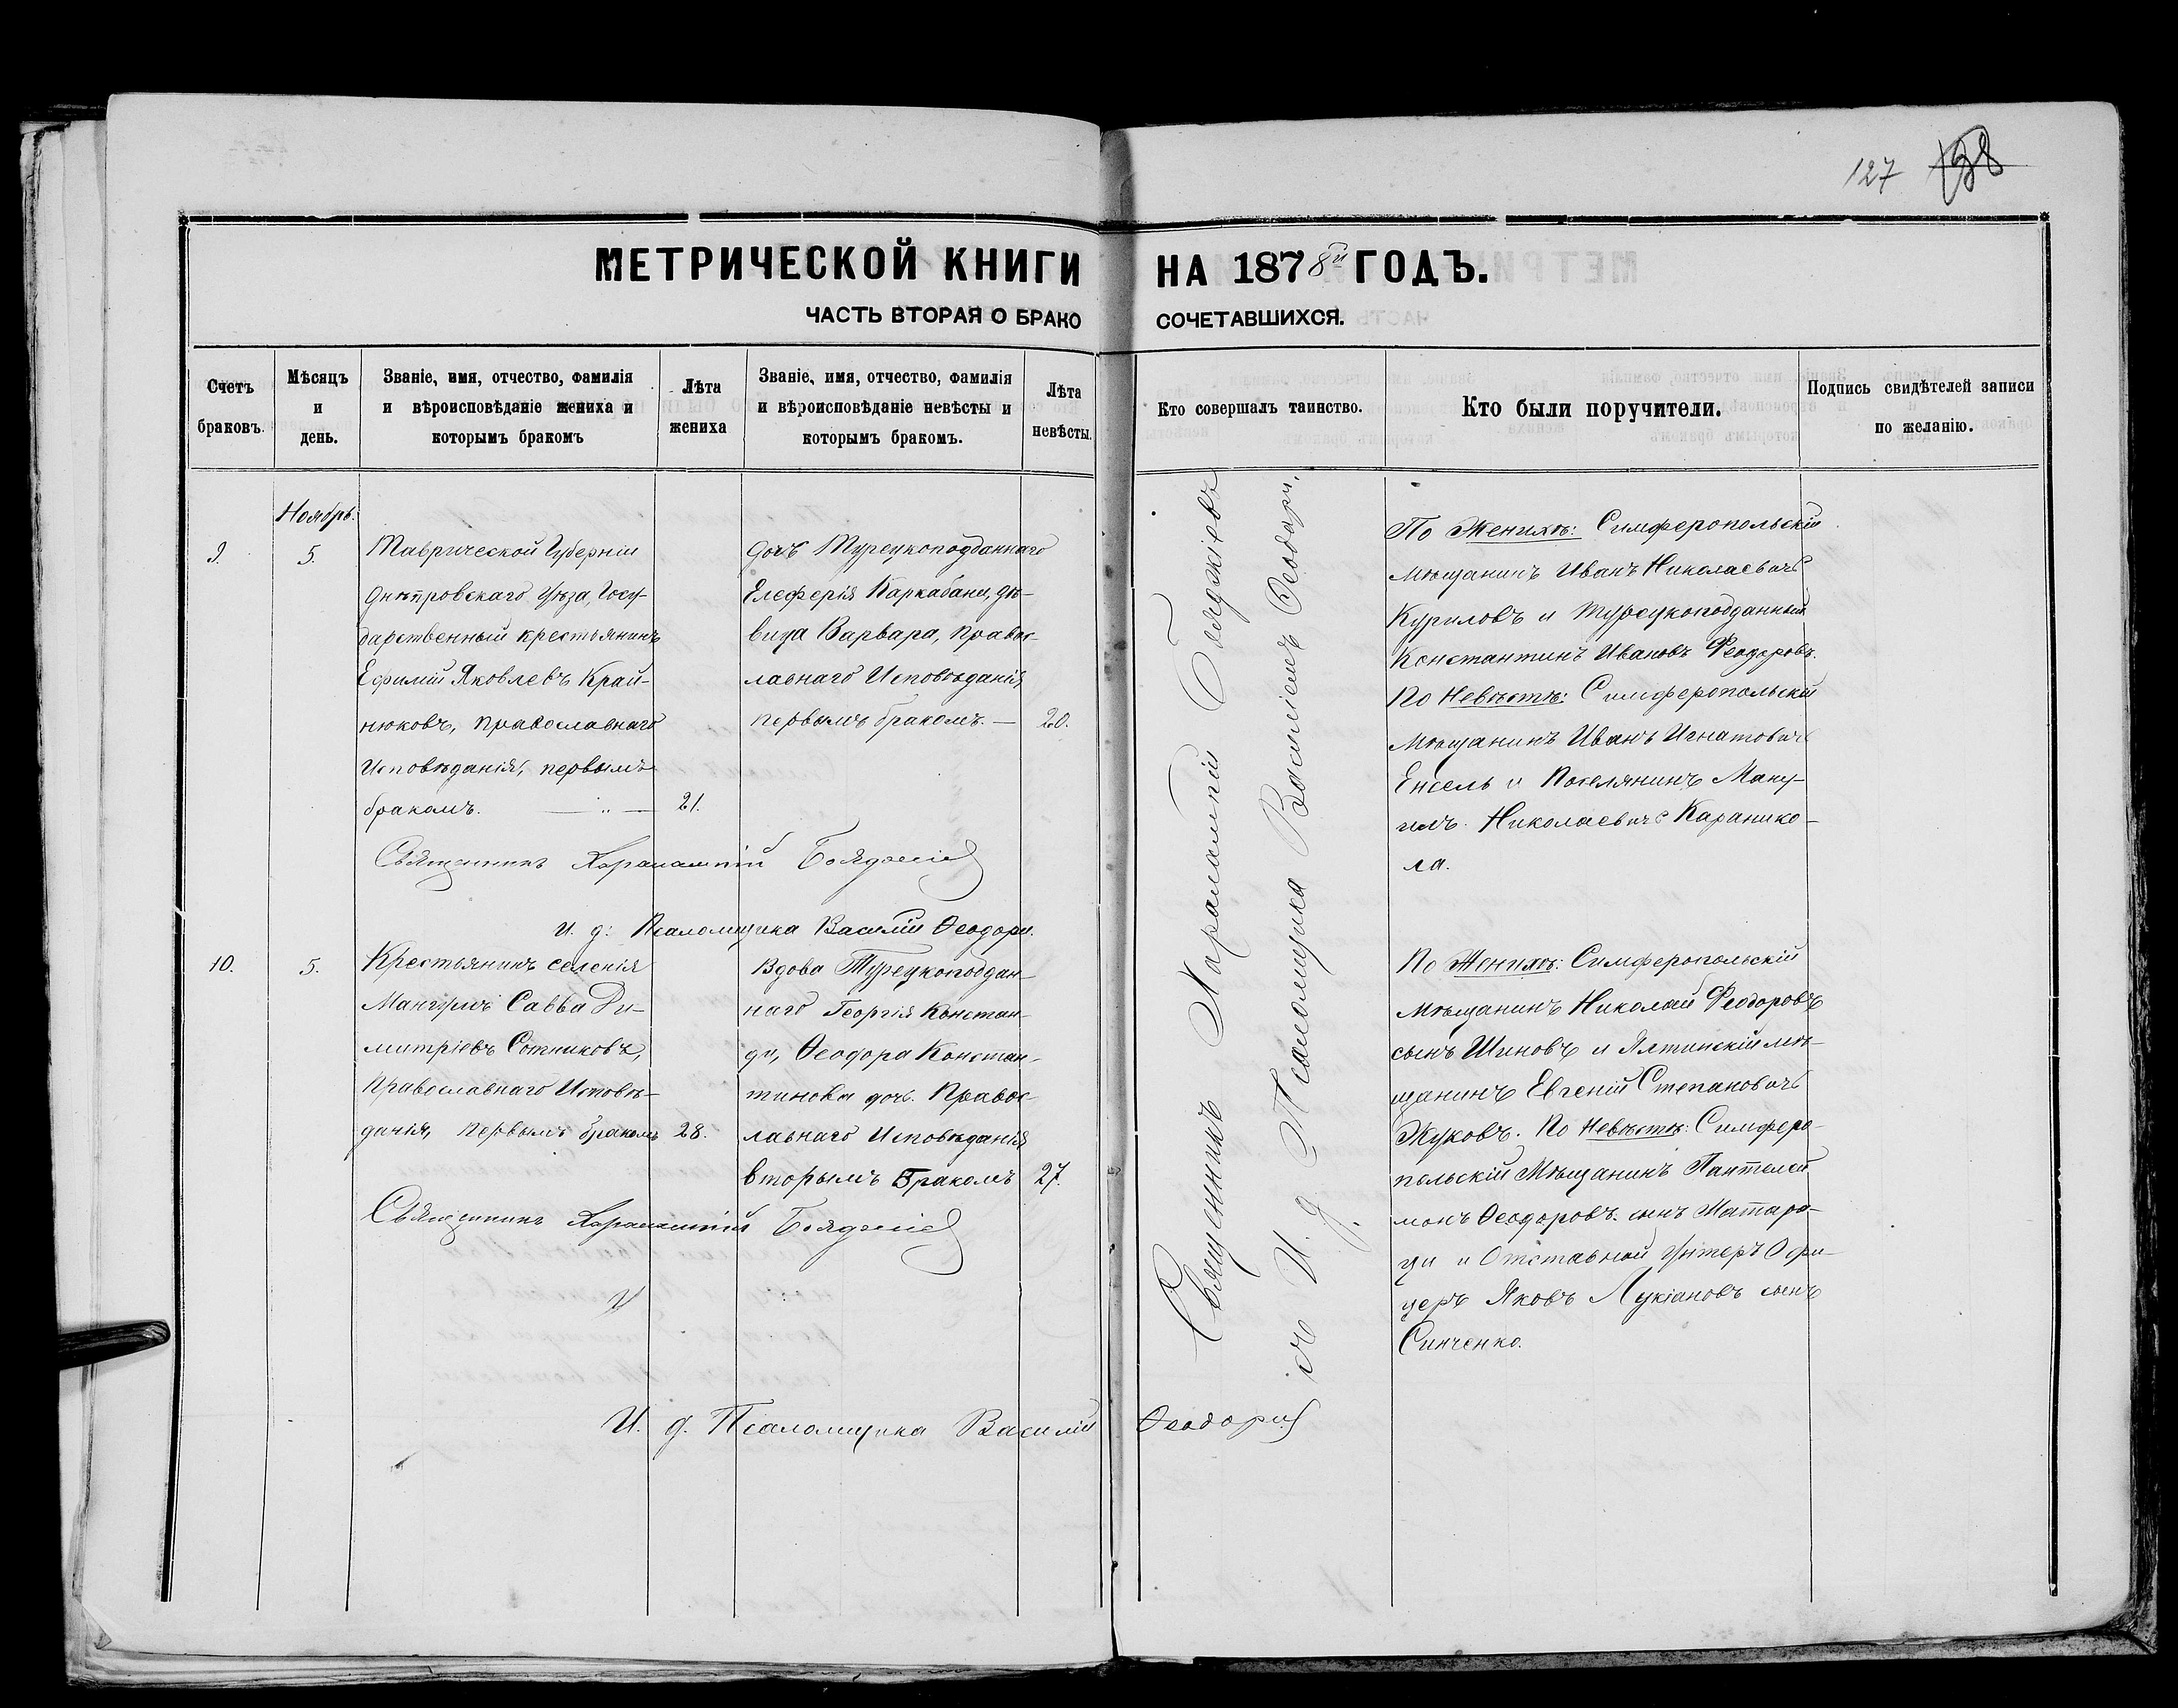 127 138
МЕТРИЧЕСКОЙ КНИГИ НА 1878й ГОДЪ.
ЧАСТЬ ВТОРАЯ О БРАКО СОЧЕТАВШИХСЯ.
Счетъ браковъ.
Мѣсяцъ и день.
Званіе, имя, отчество, фамилія и вѣроисповѣданіе жениха и которымъ бракомъ
Лѣта жениха
Званіе, имя, отчество, фамилія и вѣроисповѣданіе невѣсты и которымъ бракомъ.
Лѣта невѣсты.
Кто совершалъ таинство.
Кто были поручители.
Подпись свидѣтелей записи по желанію.
Ноябрь.
9.
5.
Таврической Губерніи
Днѣпровскаго Уѣзда, Госу-
дарственный крестьянинъ
Ефимій Яковлевъ Край-
нюковъ, православнаго
Исповѣданія, первымъ
бракомъ. — 21.
дочь Турецкоподданнаго
Елеферія Каркабани, дѣ-
вица Варвара, правос-
лавнаго Исповѣданія,
первымъ бракомъ. — 20.
Священникъ Харалампій Бояджіевъ
И. д. Псаломщика Василій Ѳеодори.
Священникъ Харалампій Бояджіевъ
съ И. д. Псаломщика Василіемъ Ѳеодори.
По Женихѣ: Симферопольскій
мѣщанинъ Иванъ Николаевичъ
Куриловъ и Турецкоподданный
Константинъ Ивановъ Феодоровъ.
По Невѣстѣ: Симферопольскій
Мѣщанинъ Иванъ Игнатовичъ
Енсель и Поселянинъ Ману-
илъ Николаевичъ Каранико-
ла.
10.
5.
Крестьянинъ селенія
Мангушъ Савва Ди-
митріевъ Сотниковъ,
Православнаго Исповѣ-
данія, первымъ бракомъ 28.
Вдова Турецкоподдан-
наго Георгія Констан-
ди, Ѳеодора Констан-
тинова дочь. Правос-
лавнаго Исповѣданія
вторымъ Бракомъ 27.
Священникъ Харалампій Бояджіевъ
И. д. Псаломщика Василій Ѳеодори
По Женихѣ: Симферопольскій
мѣщанинъ Николай Феодоровъ
сынъ Шиновъ и Ялтинскій мѣ-
щанинъ Евгеній Степановичъ
Жуковъ. По Невѣстѣ: Симферо-
польскій Мѣщанинъ Пантелей
монъ Ѳеодоровъ сынъ Матара-
ци и Отставной Унтеръ Офи-
церъ Яковъ Лукіановъ сынъ
Синченко.